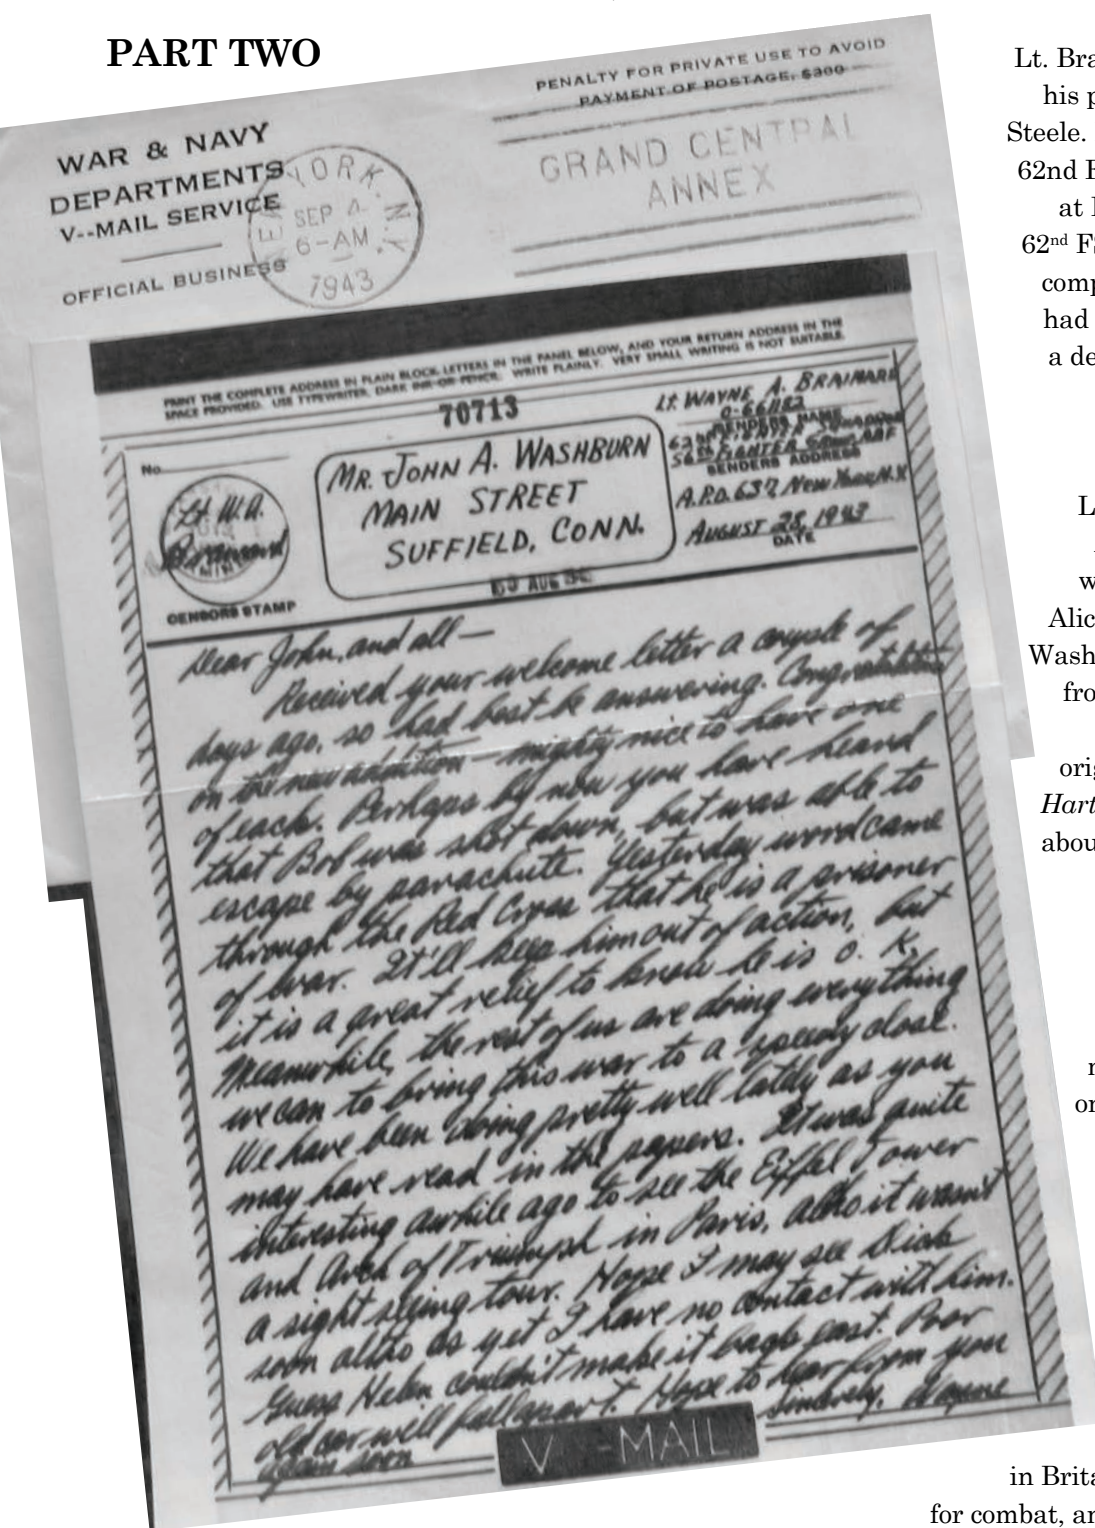 PART TWO
WAR & NAVY
DEPARTMENTS
V--MAIL SERVICE
OFFICIAL BUSINESS
NEW YORK, N.Y.
SEP 4
6-AM
1943
PENALTY FOR PRIVATE USE TO AVOID
PAYMENT OF POSTAGE, $300
GRAND CENTRAL
ANNEX
PRINT THE COMPLETE ADDRESS IN PLAIN BLOCK LETTERS IN THE PANEL BELOW, AND YOUR RETURN ADDRESS IN THE
SPACE PROVIDED. USE TYPEWRITER, DARK INK, OR PENCIL. WRITE PLAINLY. VERY SMALL WRITING IS NOT SUITABLE.
70713
No.
Lt W.A.
CENSORS STAMP
MR. JOHN A. WASHBURN
MAIN STREET
SUFFIELD, CONN.
LT. WAYNE A. BRAINARD
SENDERS NAME
62nd FIGHTER SQUADRON
56th FIGHTER GROUP AAF
SENDERS ADDRESS
A.P.O. 637, New York, N.Y.
AUGUST 28, 1943
DATE
Dear John, and all —
Received your welcome letter a couple of
days ago, so had best be answering. Congratulations
on the new addition — mighty nice to have one
of each. Perhaps by now you have heard
that Bob was shot down, but was able to
escape by parachute. Yesterday word came
through the Red Cross that he is a prisoner
of war. It'll keep him out of action, but
it is a great relief to know he is O. K.
Meanwhile, the rest of us are doing everything
we can to bring this war to a speedy close.
We have been doing pretty well lately as you
may have read in the papers. It was quite
interesting awhile ago to see the Eiffel Tower
and Arch of Triumph in Paris, altho it wasn't
a sight seeing tour. Hope I may see Dick
soon altho as yet I have no contact with him.
Guess Helen couldn't make it back east. Poor
old car will fall apart. Hope to hear from you
again soon
Sincerely, Wayne
V--MAIL
Lt. Bra
his p
Steele.
62nd F
at
62nd FS
comp
had
a de
L
w
Alic
Wash
fro
orig
Hart
abou
or
in Brita
for combat, an